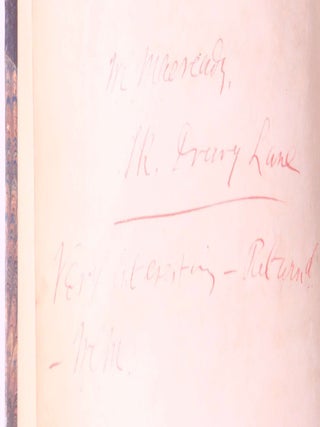 W Macready,
TR. Drury Lane
Very interesting – Returnd
– WM.